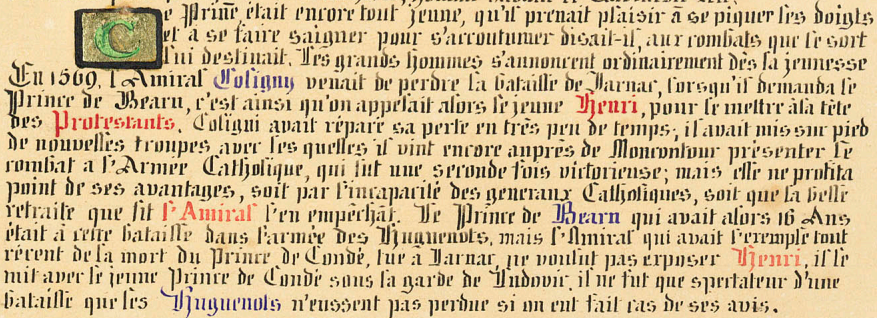 Ce Prinĉe était encore tout jeune, qu'il prenait plaisir à se piquer les doigts
et a se faire saigner pour s'accoutumer disait-il, aux combats que le sort
lui destinait. Les grands hommes s'annoncent ordinairement dès la jeunesse
En 1569, l'Amiral Coligny venait de perdre la bataille de Jarnac, lorsqu'il demanda le
Prince de Bearn, c'est ainsi qu'on appelait alors le jeune Henri, pour le mettre à la tête
des Protestants. Coligni avait réparé sa perte en très peu de temps; il avait mis sur pied
de nouvelles troupes avec lesquelles il vint encore auprès de Moncontour présenter le
combat a l'Armée Catholique, qui fut une seconde fois victorieuse; mais elle ne profita
point de ses avantages, soit par l'incapacité des generaux Catholiques, soit que la belle
retraite que fit l'Amiral l'en empêchât. Le Prince de Bearn qui avait alors 16 Ans
était à cette bataille dans l'armée des Huguenots, mais l'Amiral qui avait l'exemple tout
récent de la mort du Prince de Condé, tué a Jarnac, ne voulut pas exposer Henri, il le
mit avec le jeune Prince de Condé sous la garde de Ludovic, il ne fut que spectateur d'une
bataille que les Huguenots n'eussent pas perdue si on eut fait cas de ses avis.